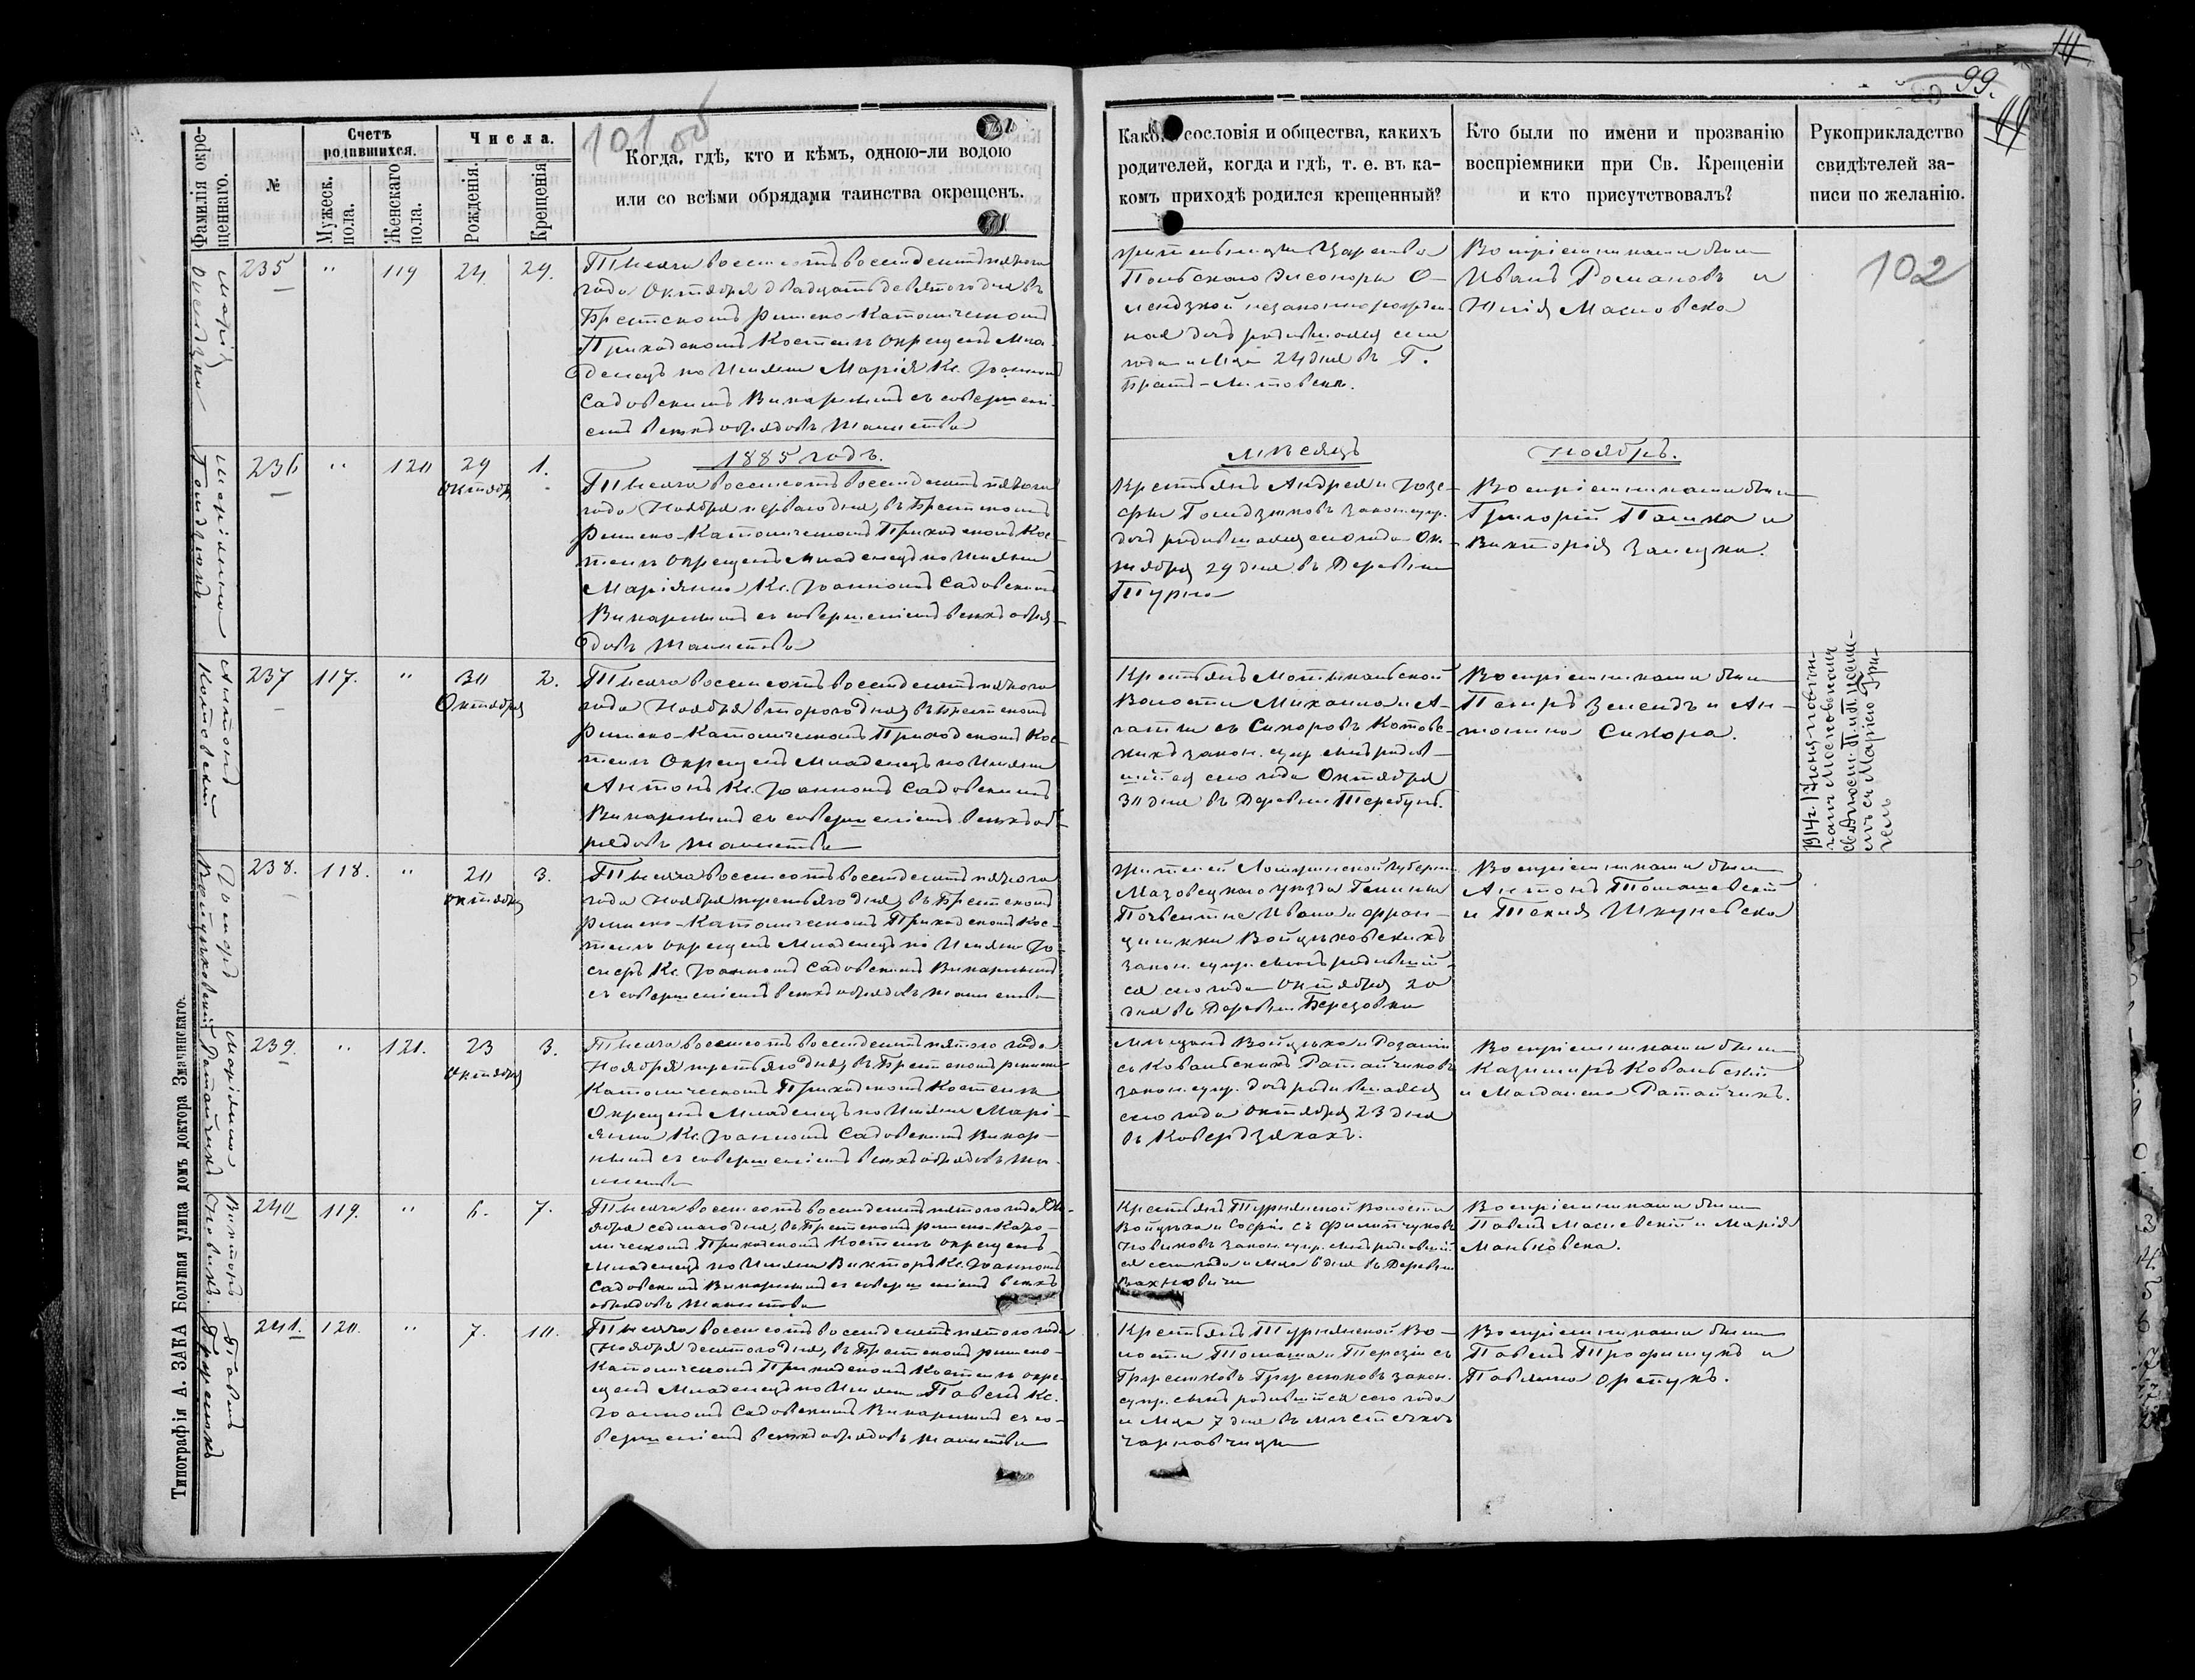 101 об
99.
102
Фамилія окре-
щеннаго.
№
Счетъ
родившихся.
Мужеск.
пола.
Женскаго
пола.
Числа.
Рожденія.
Крещенія
Когда, гдѣ, кто и кѣмъ, одною-ли водою
или со всѣми обрядами таинства окрещенъ.
сословія и общества, какихъ
родителей, когда и гдѣ, т. е. въ ка-
комъ приходѣ родился крещенный?
Кто были по имени и прозванію
воспріемники при Св. Крещеніи
и кто присутствовалъ?
Рукоприкладство
свидѣтелей за-
писи по желанію.
Марія
235 " 119 24 29.
Тысяча восемсотъ восемдесятъ пятого
года Октября двадцать девятого дня въ
Брестскомъ римско-Католическомъ
Приходскомъ Костелѣ окрещенъ Мла-
денецъ по Имяни Марія Кс. Іоанномъ
Садовскимъ Викарнымъ съ совершені-
емъ всѣхъ обрядовъ таинства
жительницы Царства
Польскаго Элеоноры О-
незаконнорожден-
ная дочь родившаяся сего
года и М-ца 24 дня въ Г.
Брестъ-Литовскѣ.
Воспріемниками были
Иванъ Романовъ и
Юлія Масловска
Маріянна
236 " 120 29 Октябр 1.
1885 годъ.
Тысяча восемсотъ восемдесятъ пятого
года Ноября первого дня, въ Брестскомъ
Римско-Католическомъ Приходскомъ Кос-
телѣ окрещенъ Младенецъ по Имяни
Маріянна Кс. Іоанномъ Садовскимъ
Викарнымъ съ совершеніемъ всѣхъ обря-
довъ таинства
Мѣсяцъ
Крестьянъ Андрея и Юзе-
фы закон. супр.
дочь родившаяся сего года Ок-
тября 29 дня въ Деревни
Турна
Ноябрь.
Воспріемниками были
Григорій и
Викторія
Антонъ
Котовскій
237 117. " 30 Октября 2.
Тысяча восемсотъ восемдесятъ пятого
года Ноября второго дня, въ Брестскомъ
Римско-Католическомъ Приходскомъ Кос-
телѣ Окрещенъ Младенецъ по Имяни
Антонъ Кс. Іоанномъ Садовскимъ
Викарнымъ съ совершеніемъ всѣхъ об-
рядовъ таинства
Крестьянъ Мотыкальской
Волости Михаила и А-
гаты съ Сикоровъ Котовс-
кихъ закон. супр. сынъ родив-
шійся сего года Октября
30 дня въ Деревни Теребунь.
Воспріемниками были
Петръ и Ан-
тонина Сикора.
1914 г. 1 Іюня повѣн-
чанъ Московскомъ
св. Апост. П. и П. косте-
лѣ съ Маріею Гри-
гель
Іосифъ
Войцѣховскій
238. 118. " 20 Октября 3.
Тысяча восемсотъ восемдесятъ пятого
года Ноября третьяго дня, въ Брестскомъ
римско-Католическомъ Приходскомъ Кос-
телѣ окрещенъ Младенецъ по Имяни Іо-
сифъ Кс. Іоанномъ Садовскимъ Викарнымъ
съ совершеніемъ всѣхъ обрядовъ таинства
жителей Ломжинской Губерни
Мазовецкаго уѣзда Гмины
Ивана и Фран-
цишки Войцѣховскихъ
закон. супр. сынъ родившій-
ся сего года Октября 20
дня въ Деревни Березовки
Воспріемниками были
Антонъ Томашевскій
и Текля
Маріянна
Ратайчикъ
239. " 121. 23 Октября 3.
Тысяча восемсотъ восемдесятъ пятого года
Ноября третьяго дня, въ Брестскомъ римско-
Католическомъ Приходскомъ Костелѣ
Окрещенъ Младенецъ по Имяни Марі-
янна Кс. Іоанномъ Садовскимъ Викар-
нымъ съ совершеніемъ всѣхъ обрядовъ та-
инства
Мѣщанъ Войцѣха и Розаліи
съ Ковальскихъ Ратайчиковъ
закон. супр. дочь родившаяся
сего года Октября 23 дня
въ Ковердзякахъ.
Воспріемниками были
Казимиръ Ковальскій
и Магдалена Ратайчикъ.
Викторъ
Новикъ.
240 119. " 6. 7.
Тысяча восемсотъ восемдесятъ пятого года Но-
ября седмаго дня, въ Брестскомъ римско-Като-
лическомъ Приходскомъ Костелѣ окрещенъ
Младенецъ по Имяни Викторъ Кс. Іоанномъ
Садовскимъ Викарнымъ съ совершеніемъ всѣхъ
обрядовъ таинства
Крестьянъ Турнянской Волости
Войцѣха и Софіи съ Филипчуковъ
Новиковъ закон. супр. сынъ родившій-
ся сего года и М-ца 6 дня въ Деревни
Вахновичи
Воспріемниками были
Павелъ и Марія
Маньковска.
Павелъ
241. 120. " 7. 10.
Тысяча восемсотъ восемдесятъ пятого года
Ноября десятого дня, въ Брестскомъ римско-
Католическомъ Приходскомъ Костелѣ окре-
щенъ Младенецъ по Имяни Павелъ Кс.
Іоанномъ Садовскимъ Викарнымъ съ со-
вершеніемъ всѣхъ обрядовъ таинства
Крестьянъ Турнянской Во-
лости Томаша и Терезіи съ
закон.
супр. сынъ родившійся сего года
и М-ца 7 дня въ мѣстечкѣ
Чернавчицы
Воспріемниками были
Павелъ Трофимукъ и
Павлина
Типографія А. ЗАКА Большая улица домъ доктора Значинскаго.